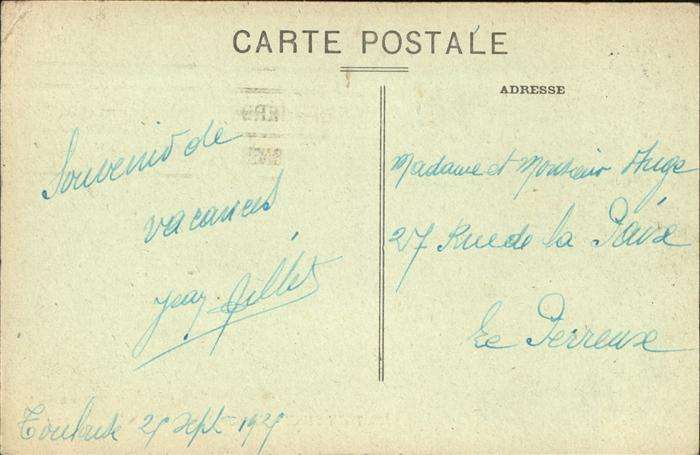 CARTE POSTALE
ADRESSE
Souvenir de
vacances
Jean Gillet
Toulouse 29 Sept 1929
Madame et Monsieur Auge
27 Rue de la Paix
Le Perreux